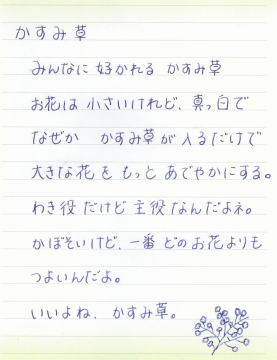 かすみ草
みんなに 好かれる かすみ草
お花は 小さいけれど、真っ白で
なぜか かすみ草が入るだけで
大きな花を もっと あでやかにする。
わき役 だけど 主役 なんだよネ。
かぼそいけど、一番 どのお花よりも
つよいんだよ。
いいよね、かすみ草。